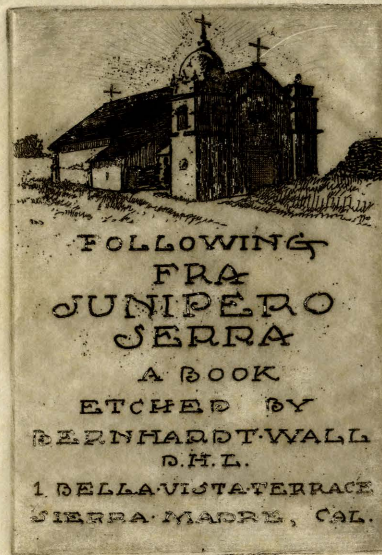 FOLLOWING
FRA
JUNIPERO
SERRA
A BOOK
ETCHED BY
BERNHARDT·WALL
D.H.L.
1 BELLA·VISTA·TERRACE
SIERRA·MADRE, CAL.